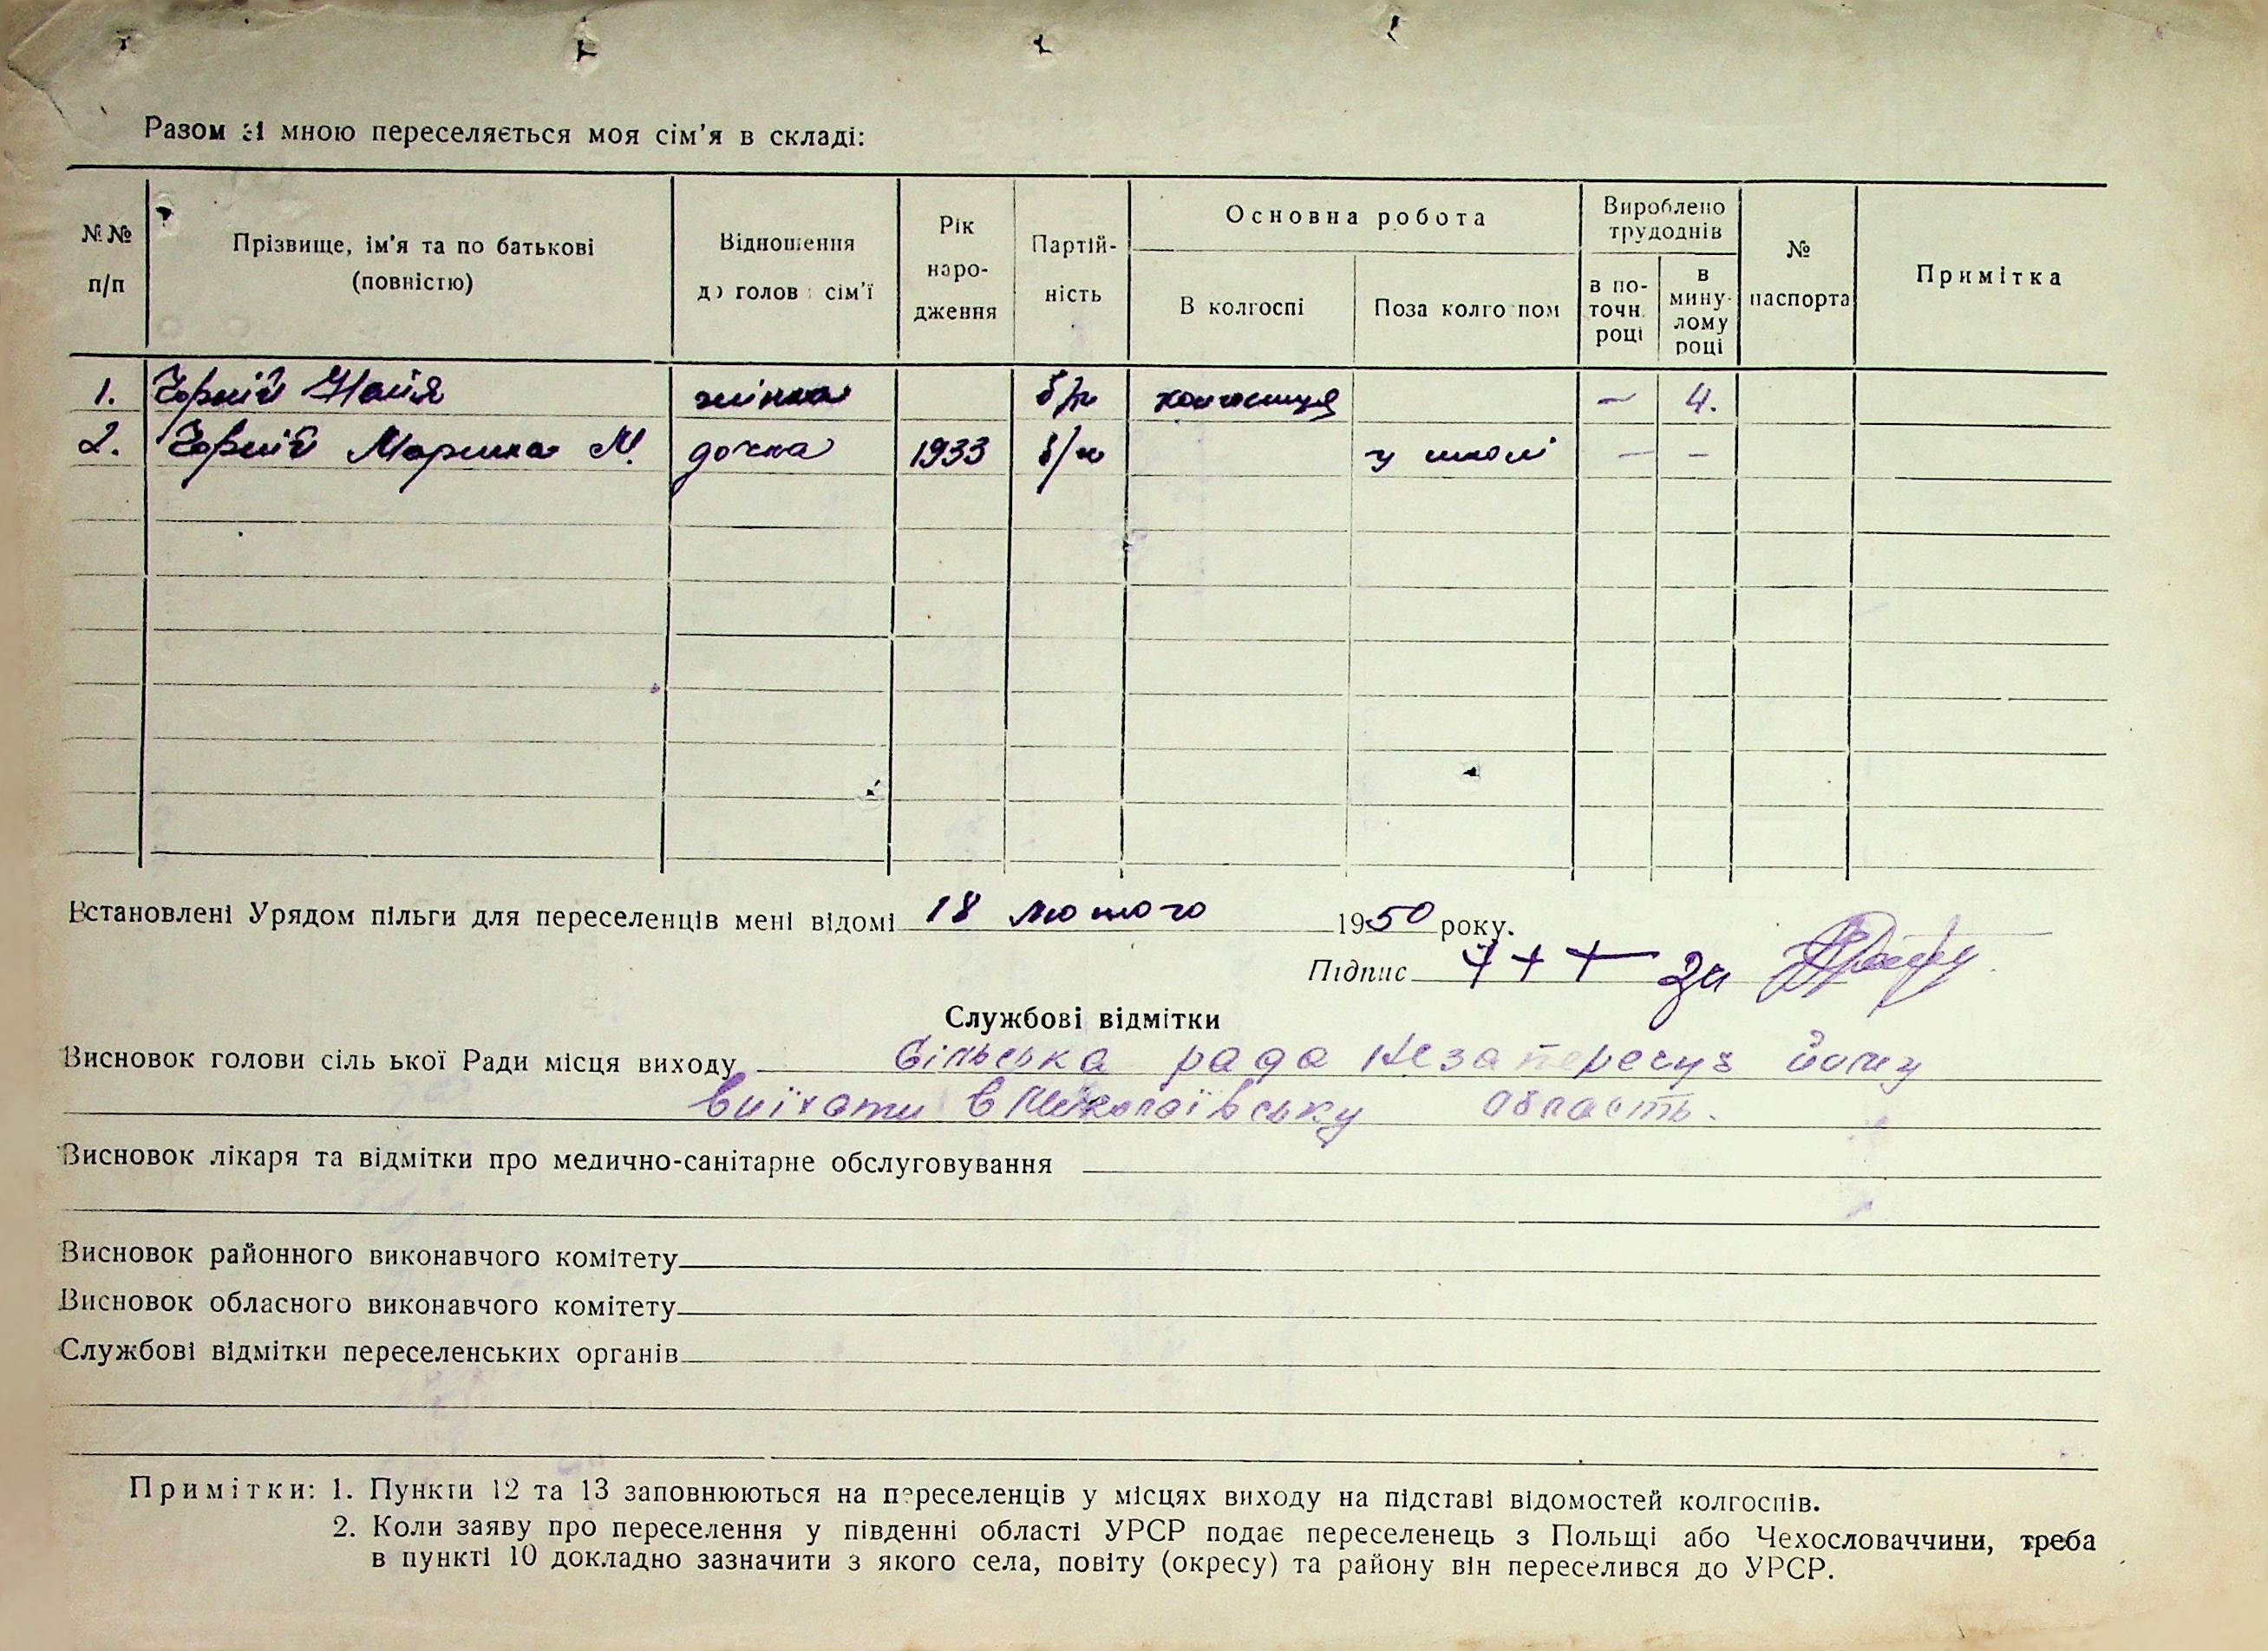 Разом зі мною переселяється моя сім'я в складі:
№№ п/п
Прізвище, ім'я та по батькові (повністю)
Відношення до голови сім'ї
Рік народження
Партійність
Основна робота
В колгоспі
Поза колгоспом
Вироблено трудоднів
в поточн. році
в минулому році
№ паспорта
Примітка
1. Чорній жінка б/п колгоспниця — 4.
2. Чорній Марина М. дочка 1933 б/п у школі — —
Встановлені Урядом пільги для переселенців мені відомі 18 лютого 1950 року.
Підпис + + + за
Службові відмітки
Висновок голови сільської Ради місця виходу Сільська рада незаперечує йому
виїхати в Миколаївську область.
Висновок лікаря та відмітки про медично-санітарне обслуговування
Висновок районного виконавчого комітету
Висновок обласного виконавчого комітету
Службові відмітки переселенських органів
Примітки: 1. Пункти 12 та 13 заповнюються на переселенців у місцях виходу на підставі відомостей колгоспів.
2. Коли заяву про переселення у південні області УРСР подає переселенець з Польщі або Чехословаччини, треба
в пункті 10 докладно зазначити з якого села, повіту (окресу) та району він переселився до УРСР.